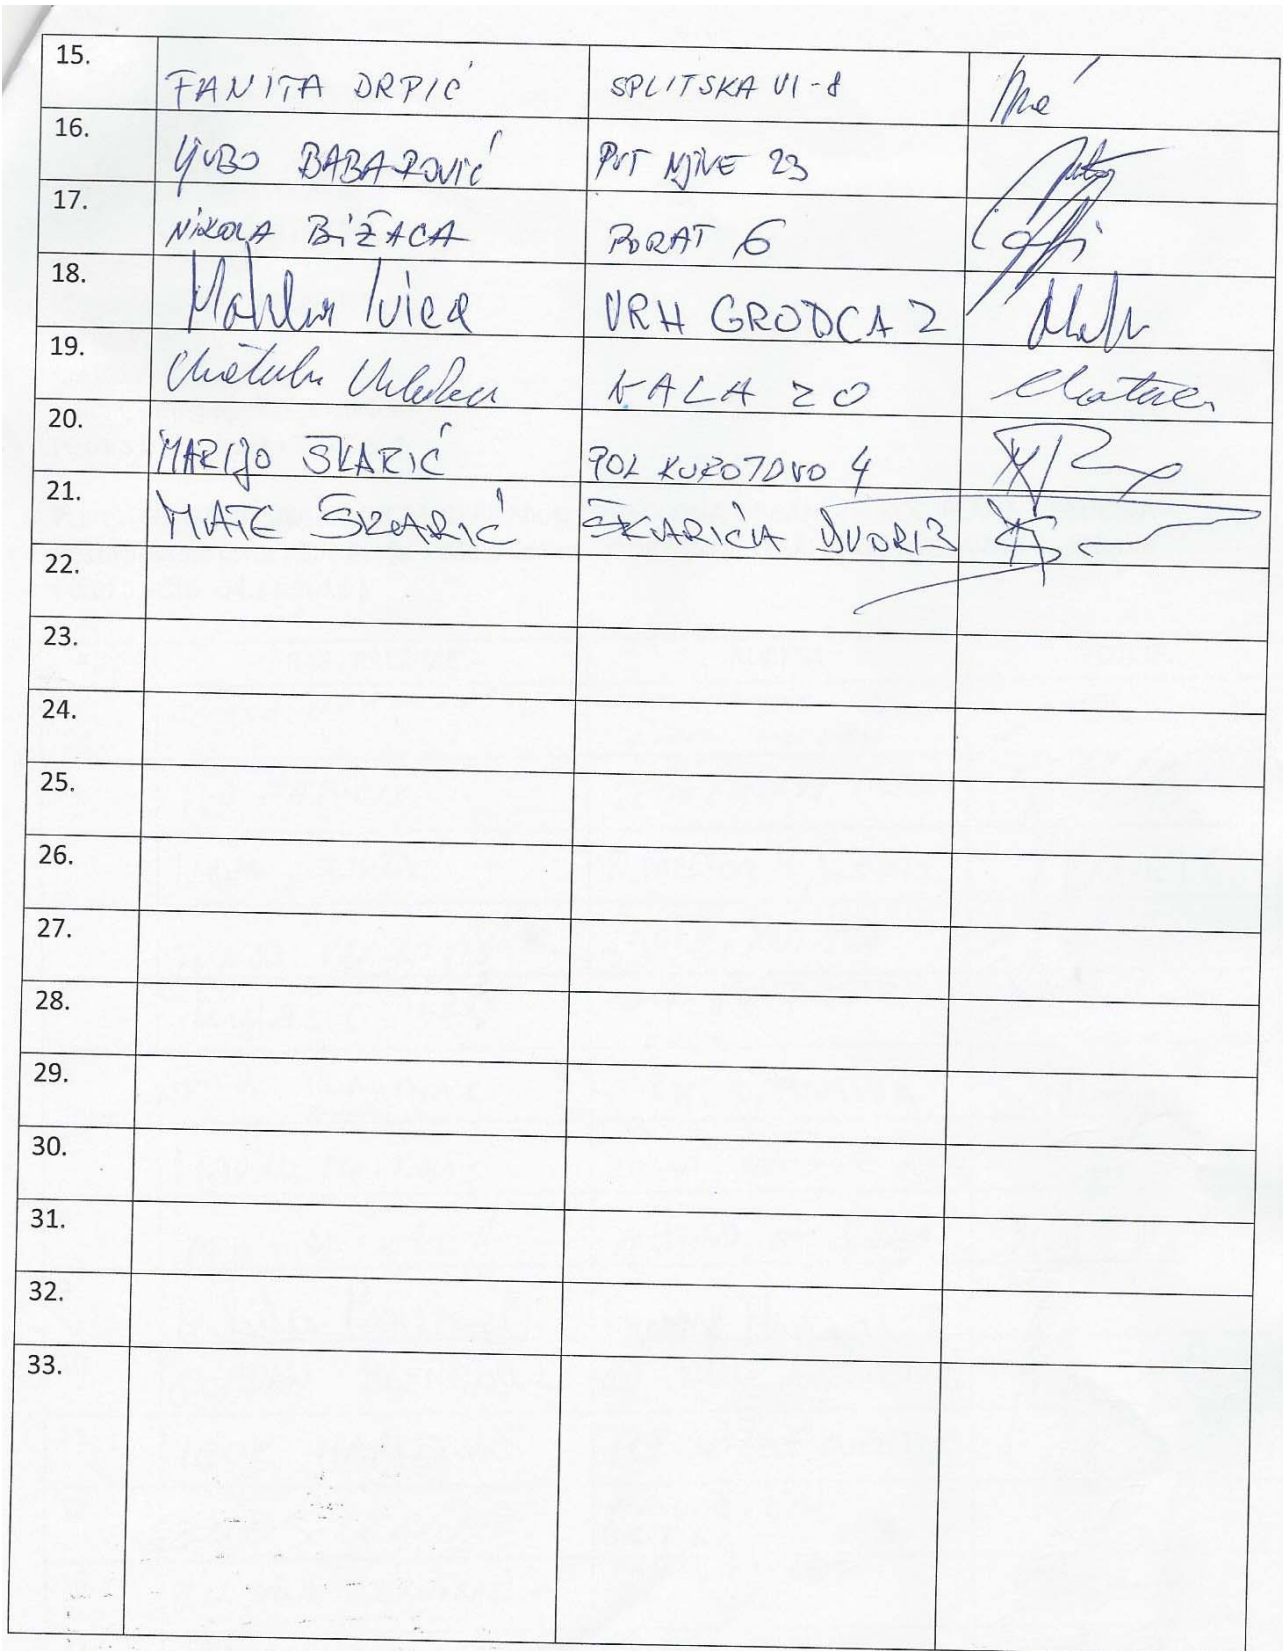 15. FANITA DRPIĆ SPLITSKA VI-8
16. LJUBO BABAROVIĆ PUT NJIVE 23
17. NIKOLA BIŽACA PORAT 6
18. Ivica VRH GRODCA 2
19. KALA 20
20. MARIJO ŠKARIĆ POL KUROTOVO 4
21. MATE ŠKARIĆ ŠKARIĆA DVORI 3
22.
23.
24.
25.
26.
27.
28.
29.
30.
31.
32.
33.